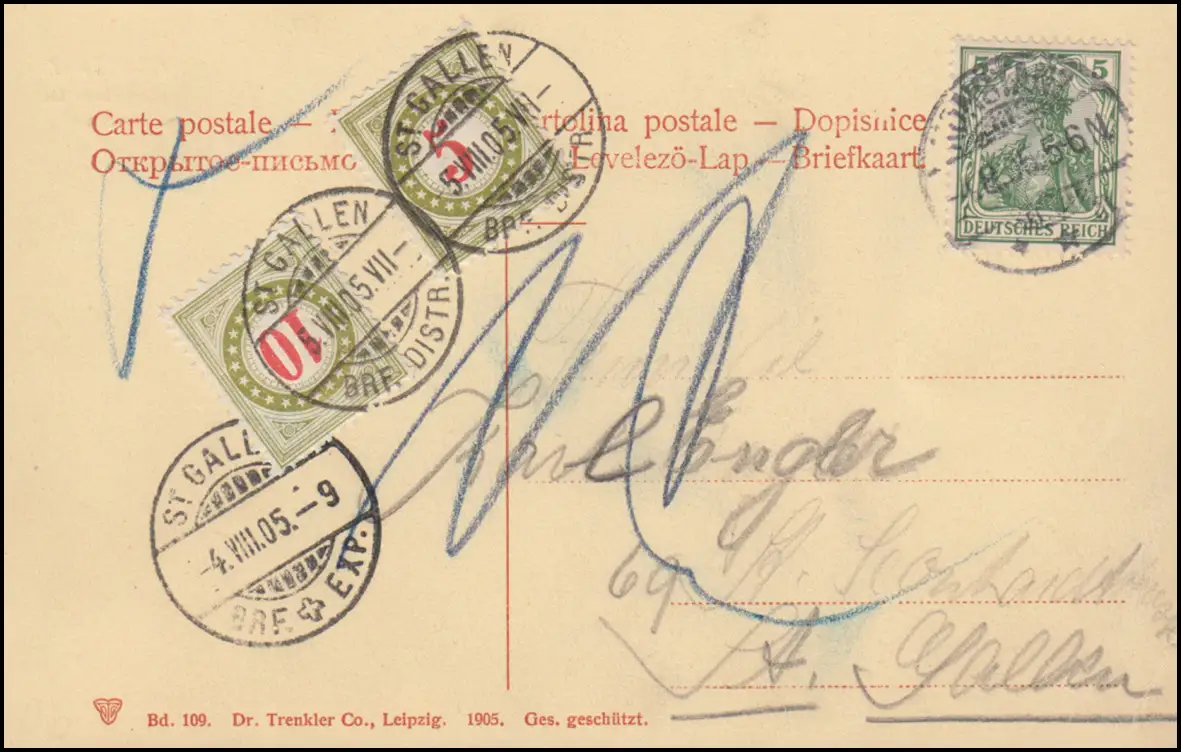 Carte postale — artolina postale — Dopisnice
Открытое-письмо Levelezö-Lap — Briefkaart
5 5
DEUTSCHES REICH
5-6 N.
ST. GALLEN
5.VIII.05.VII-
BRF. DISTR.
5
ST. GALLEN
5.VIII.05.VII-
BRF. DISTR.
10
ST. GALL
-4.VIII.05.-9
BRF. EXP.
Karl Engler
69 St.
St. Gallen
Bd. 109. Dr. Trenkler Co., Leipzig. 1905. Ges. geschützt.